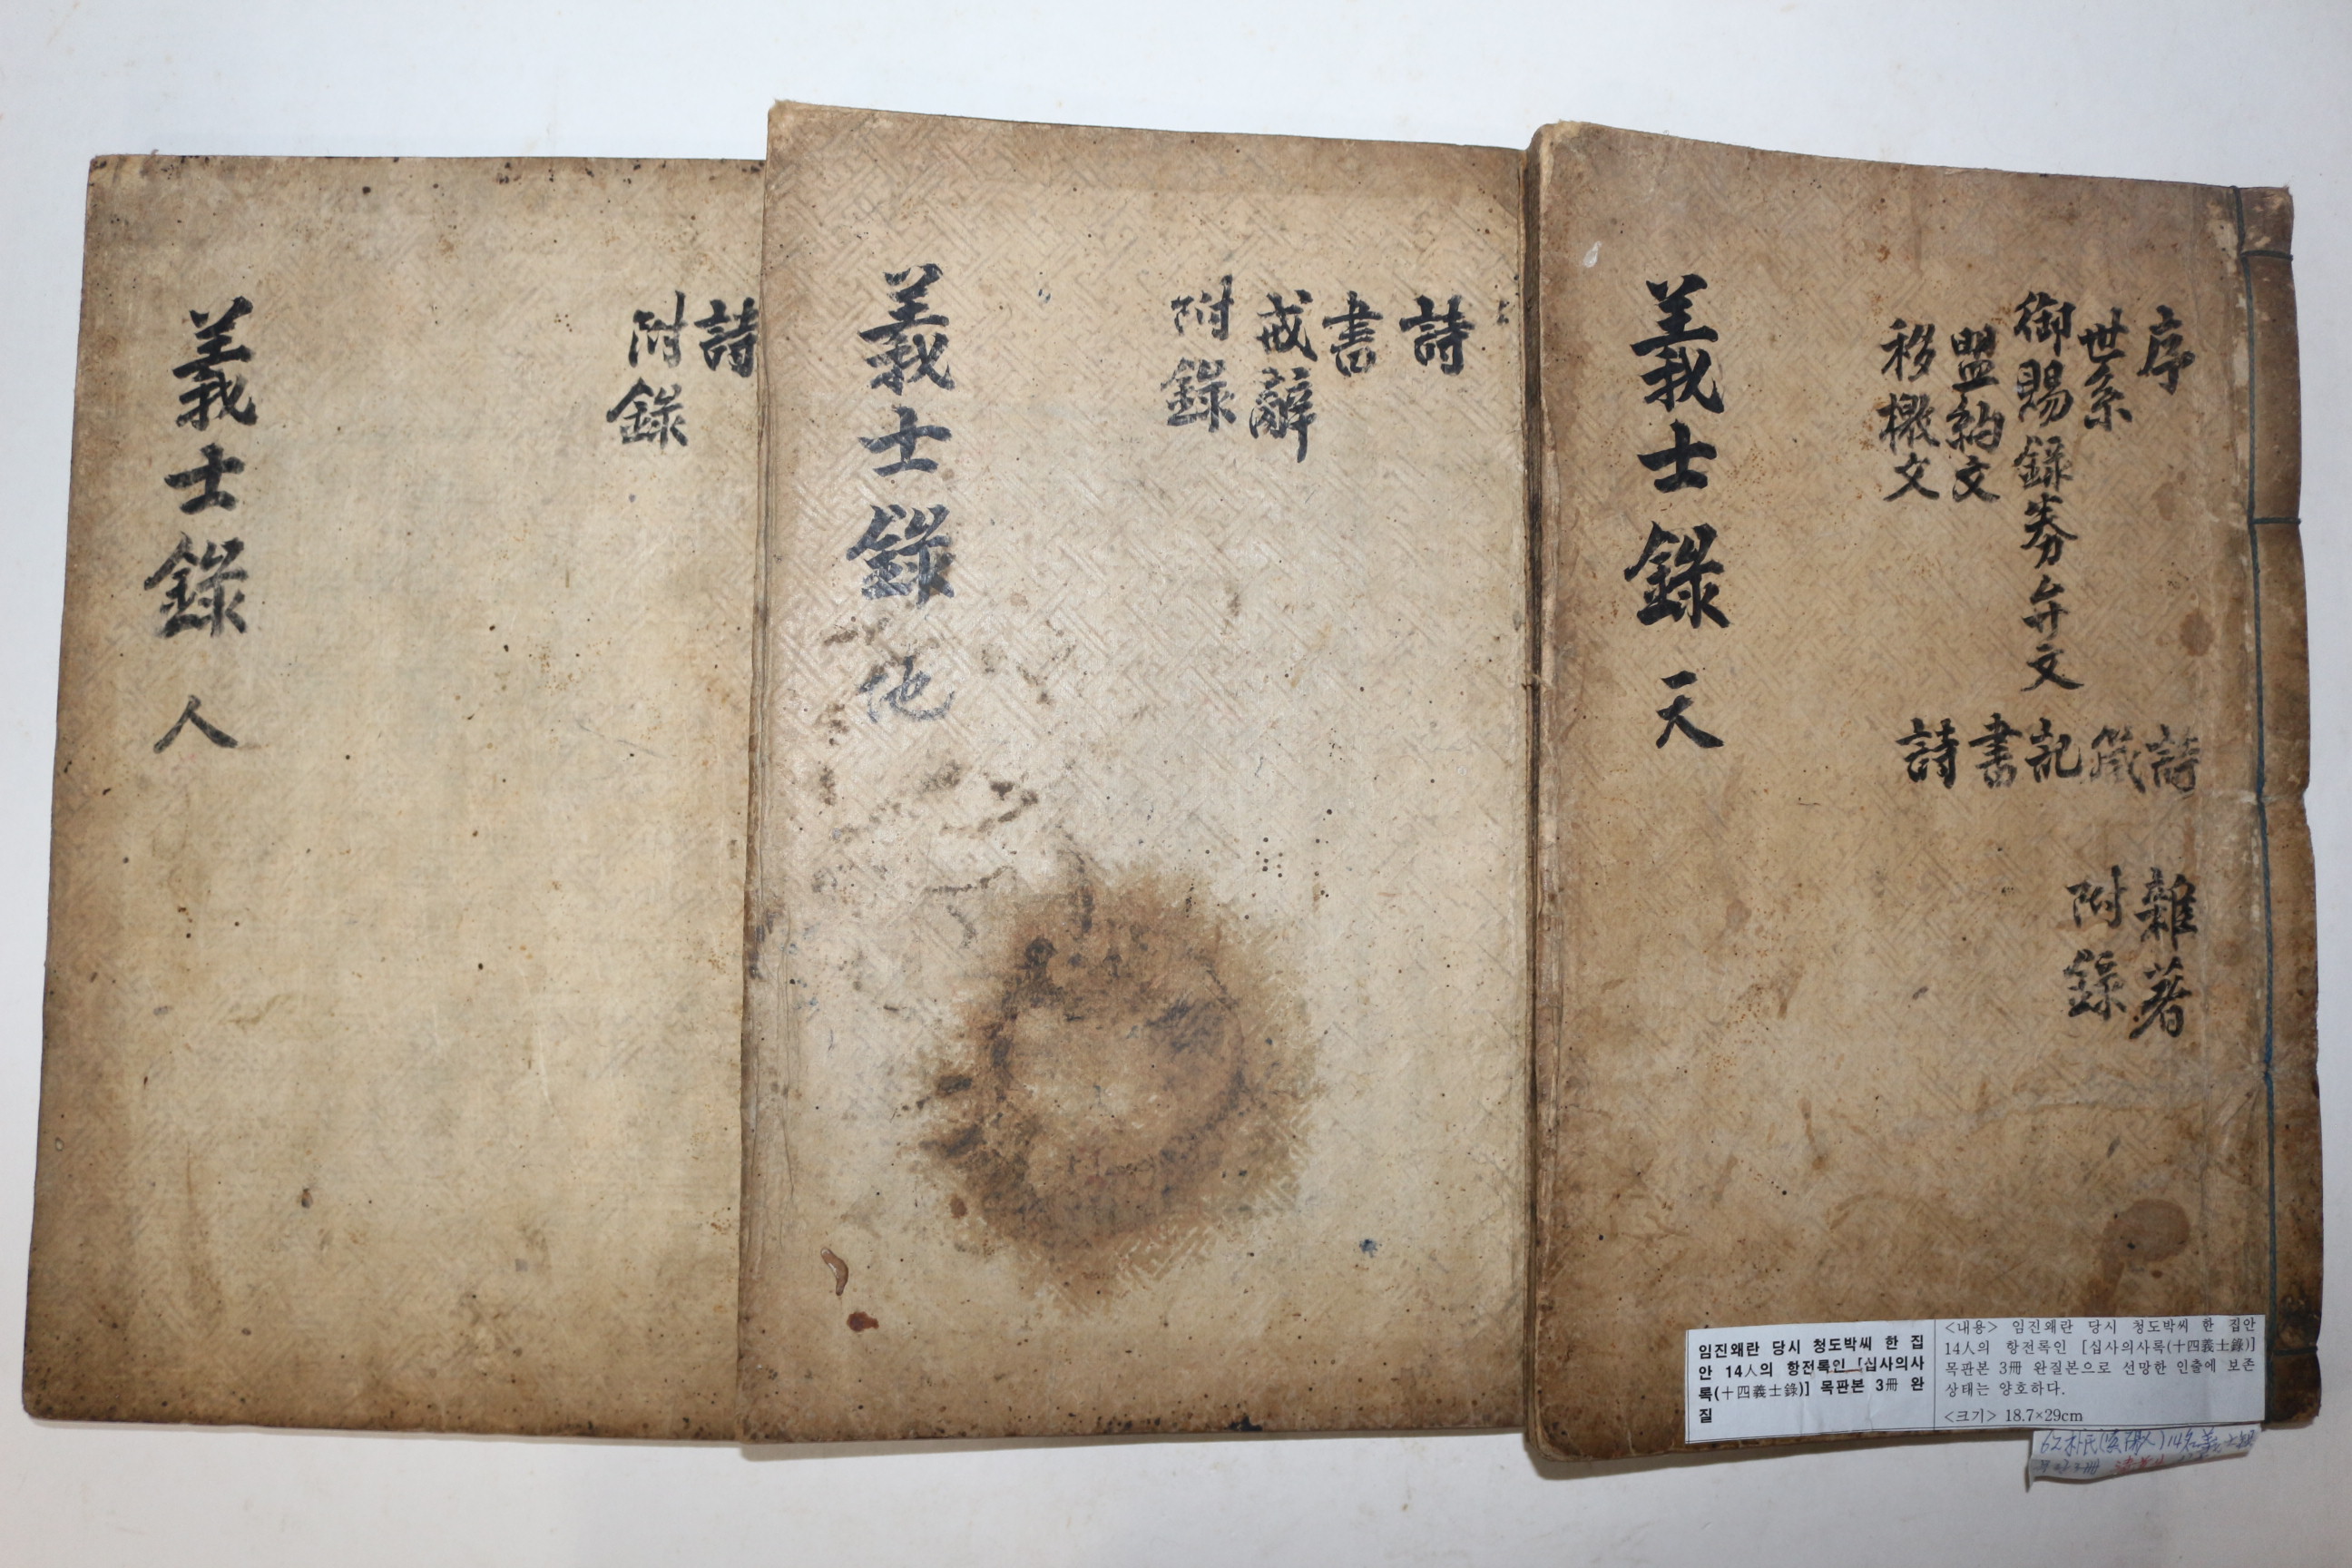 序
世系
御賜錄券弁文
盟約文
移檄文
詩
箴
記
書
詩
雜著
附錄
義士錄 天
詩
書
戒辭
附錄
義士錄 地
詩
附錄
義士錄 人
임진왜란 당시 청도박씨 한 집
안 14人의 항전록인 [십사의사
록(十四義士錄)] 목판본 3冊 완
질
<내용> 임진왜란 당시 청도박씨 한 집안
14人의 항전록인 [십사의사록(十四義士錄)]
목판본 3冊 완질본으로 선명한 인출에 보존
상태는 양호하다.
<크기> 18.7×29cm